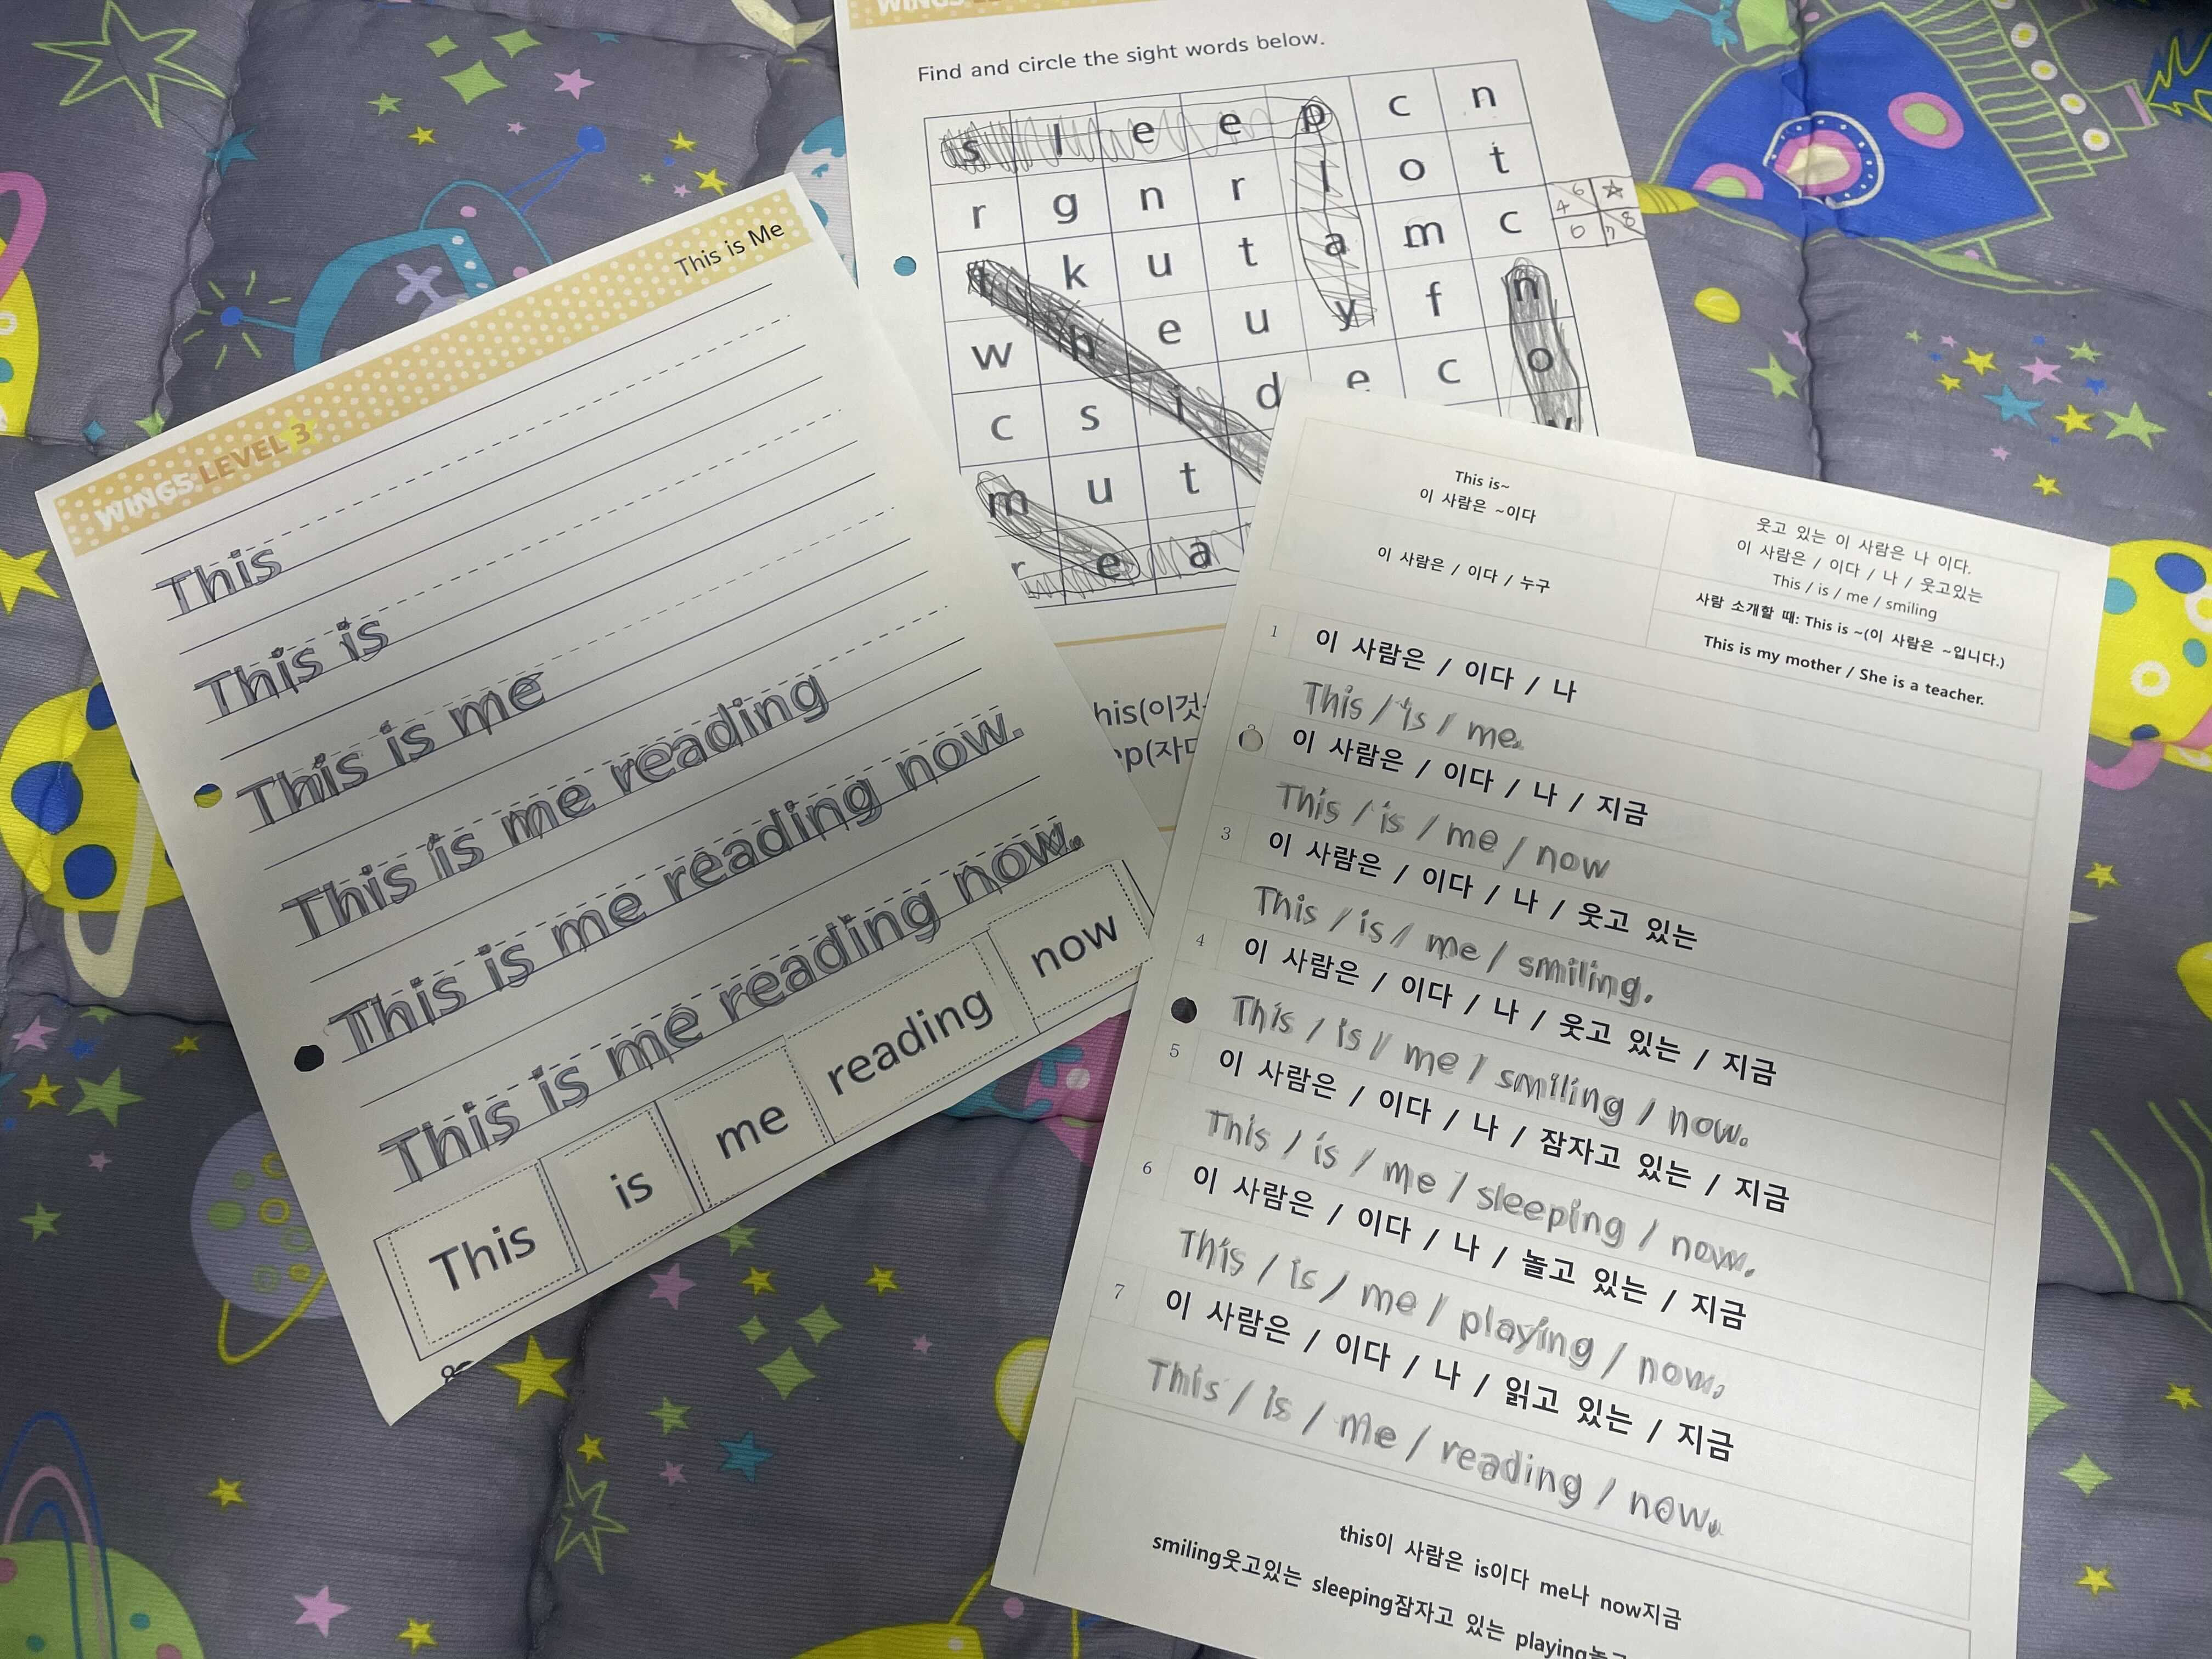 WINGS LEVEL 3
This is Me
This
This is
This is me
This is me reading
This is me reading now.
This is me reading now.
This is me reading now
WINGS
Find and circle the sight words below.
s l e e p c n
r g n r l o t
t k u t a m c
w h e u y f n
c s i d e c o
m u t
r e a
6 4 8
his(이것
ep(자다
This is~
이 사람은 ~이다
이 사람은 / 이다 / 누구
웃고 있는 이 사람은 나 이다.
이 사람은 / 이다 / 나 / 웃고있는
This / is / me / smiling
사람 소개할 때: This is ~(이 사람은 ~입니다.)
This is my mother / She is a teacher.
1 이 사람은 / 이다 / 나
This / is / me.
2 이 사람은 / 이다 / 나 / 지금
This / is / me / now
3 이 사람은 / 이다 / 나 / 웃고 있는
This / is / me / smiling.
4 이 사람은 / 이다 / 나 / 웃고 있는 / 지금
This / is / me / smiling / now.
5 이 사람은 / 이다 / 나 / 잠자고 있는 / 지금
This / is / me / sleeping / now.
6 이 사람은 / 이다 / 나 / 놀고 있는 / 지금
This / is / me / playing / now.
7 이 사람은 / 이다 / 나 / 읽고 있는 / 지금
This / is / me / reading / now.
this이 사람은 is이다 me나 now지금
smiling웃고있는 sleeping잠자고 있는 playing놀고